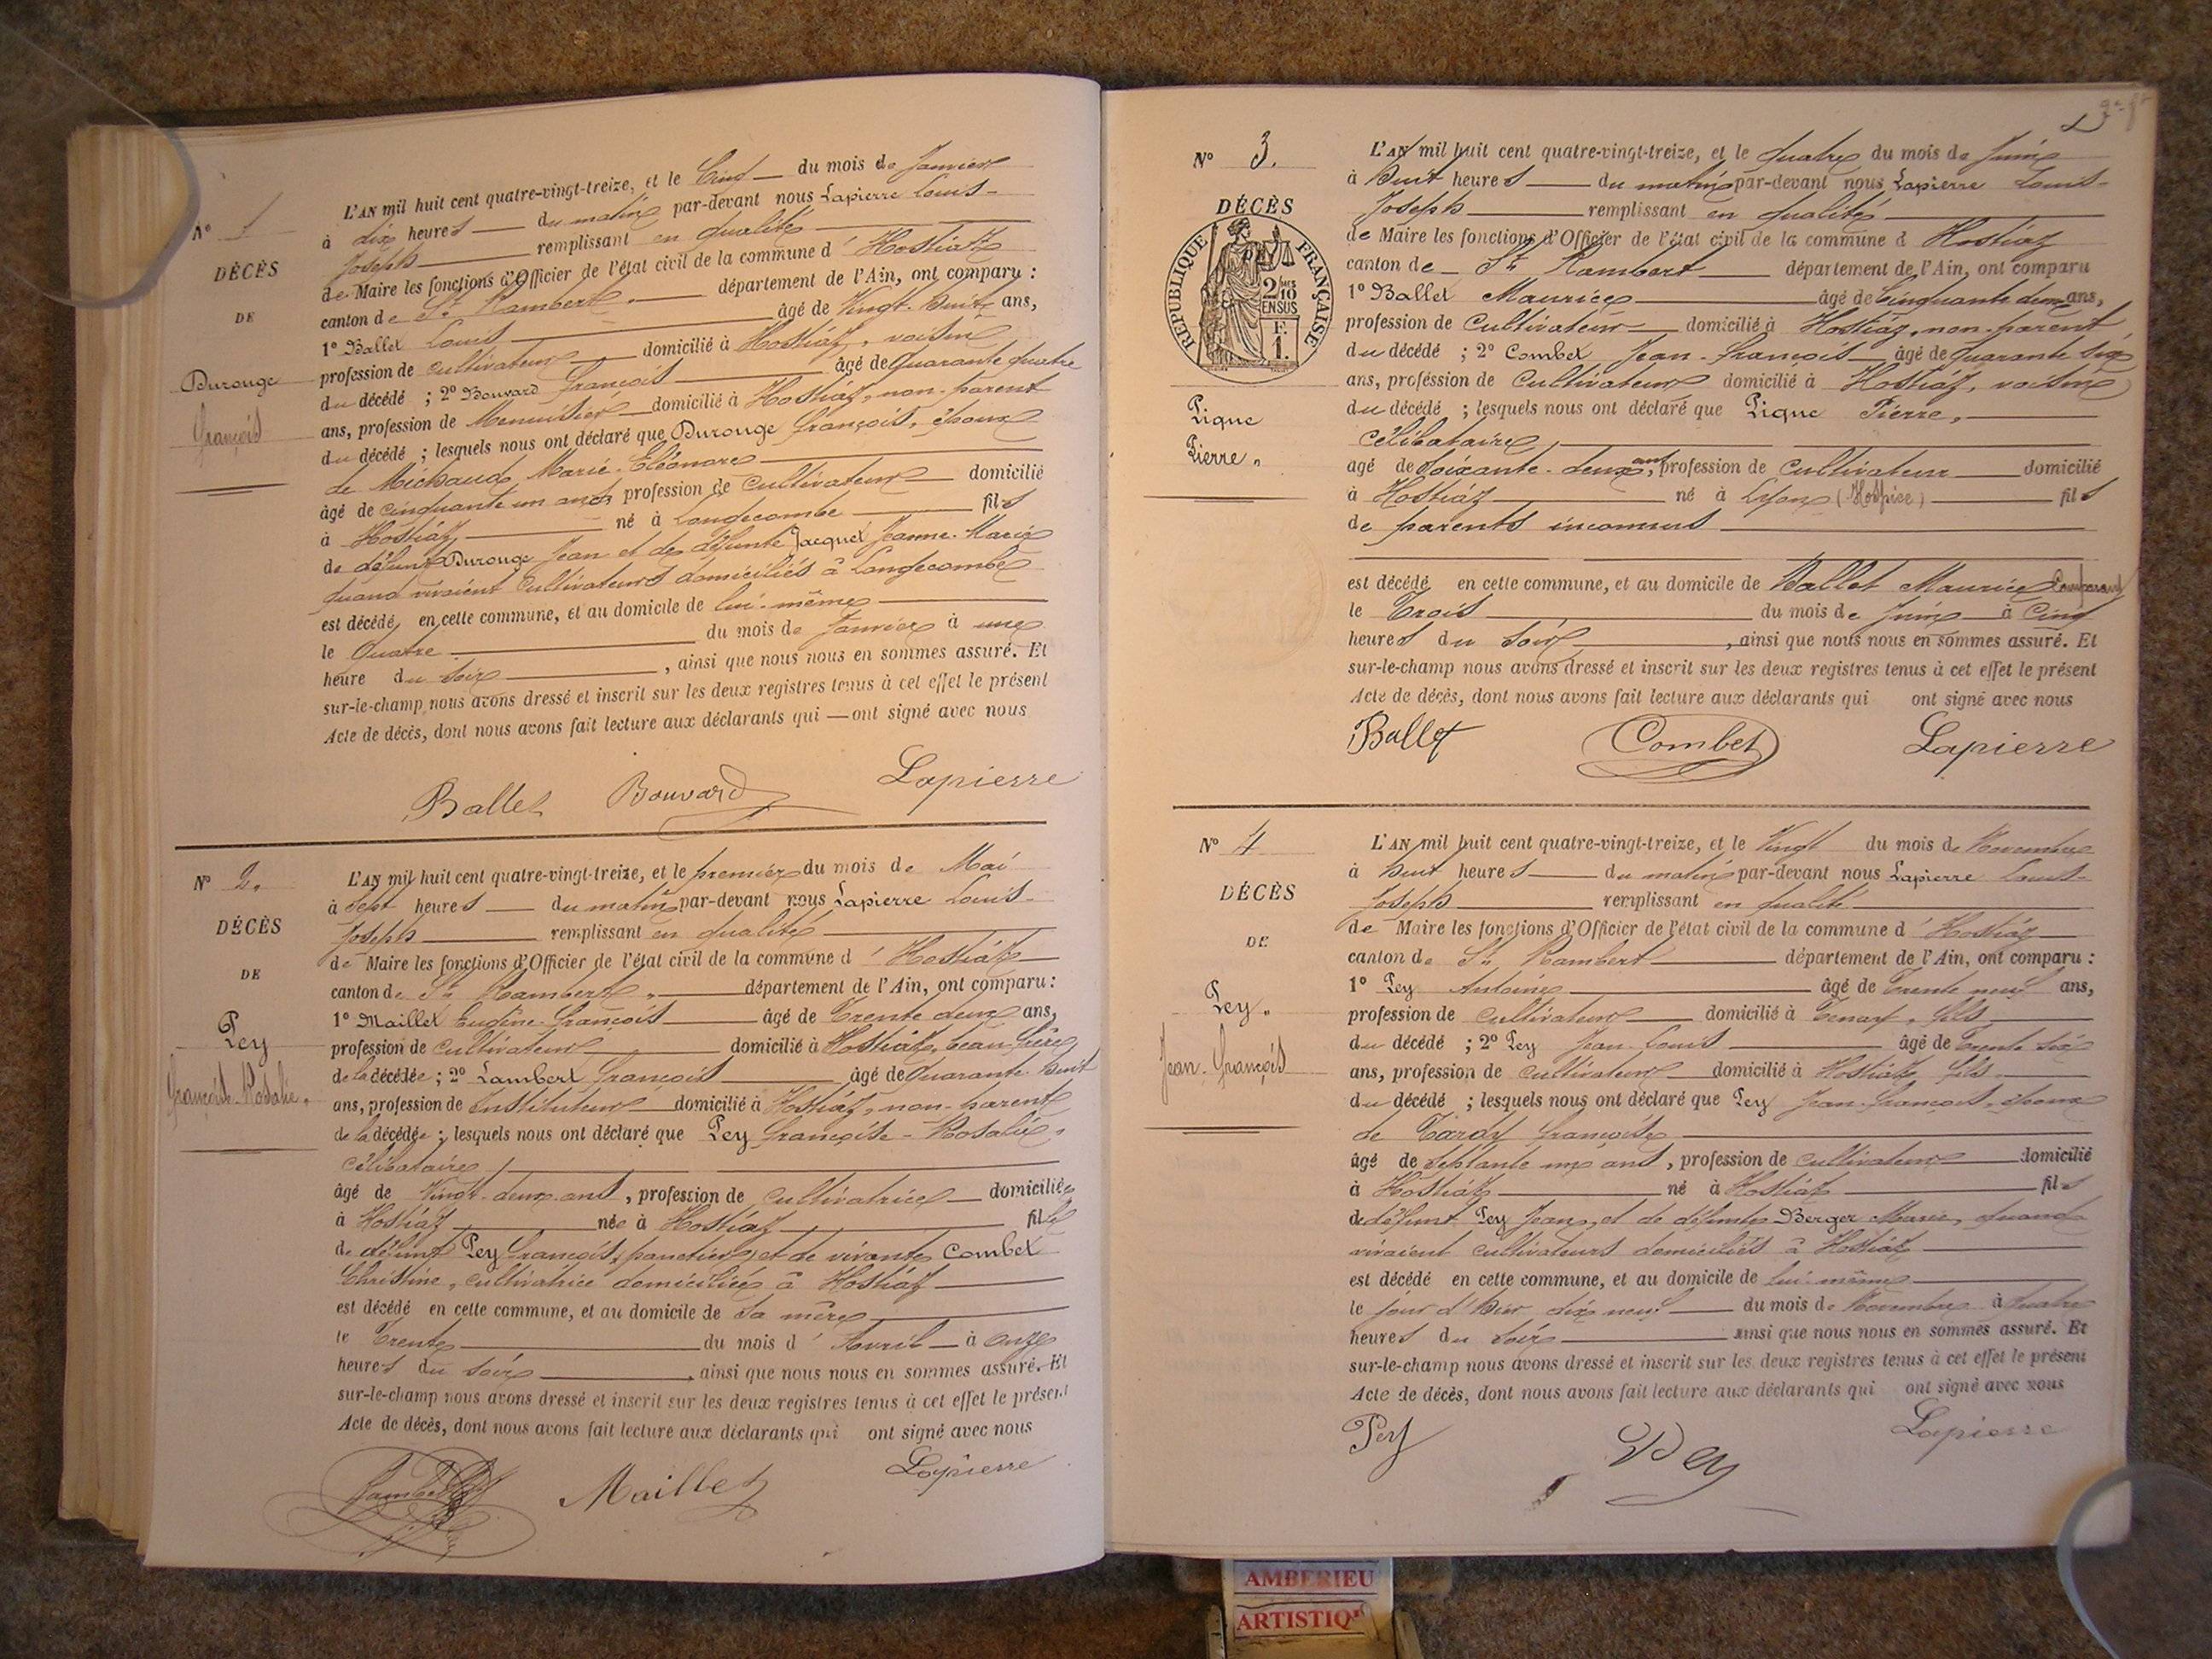 N° 1
DÉCÈS
DE
Durouge
François
L'AN mil huit cent quatre-vingt-treize, et le Cinq du mois de Janvier
à dix heures du matin par-devant nous Lapierre Louis-
Joseph remplissant en qualité
de Maire les fonctions d'Officier de l'état civil de la commune d' Hostiaz
canton de St Rambert département de l'Ain, ont comparu :
1° Ballet Louis âgé de Vingt-huit ans,
profession de cultivateur domicilié à Hostiaz, voisin
du décédé ; 2° Bouvard François âgé de quarante quatre
ans, profession de Menuisier domicilié à Hostiaz, non-parent
du décédé ; lesquels nous ont déclaré que Durouge François, époux
de Michaud Marie-Eléonore
âgé de cinquante un ans profession de cultivateur domicilié
à Hostiaz né à Longecombe fils
de défunt Durouge Jean et de défunte Jacquet Jeanne-Marie
quand vivaient cultivateurs domiciliés à Longecombe
est décédé en cette commune, et au domicile de lui-même
le Quatre du mois de Janvier à une
heure du soir , ainsi que nous nous en sommes assuré. Et
sur-le-champ nous avons dressé et inscrit sur les deux registres tenus à cet effet le présent
Acte de décès, dont nous avons fait lecture aux déclarants qui — ont signé avec nous
Ballet Bouvard Lapierre
N° 2.
DÉCÈS
DE
Pey
Françoise-Rosalie.
L'AN mil huit cent quatre-vingt-treize, et le premier du mois de Mai
à Sept heures du matin par-devant nous Lapierre Louis-
Joseph remplissant en qualité
de Maire les fonctions d'Officier de l'état civil de la commune d' Hostiaz
canton de St Rambert département de l'Ain, ont comparu :
1° Maillet Eugène-François âgé de Trente deux ans,
profession de cultivateur domicilié à Hostiaz, beau-frère
de la décédée ; 2° Lambert François âgé de Quarante-huit
ans, profession de Instituteur domicilié à Hostiaz, non-parent
de la décédée ; lesquels nous ont déclaré que Pey Françoise-Rosalie,
célibataire,
âgé de Vingt-deux ans, profession de cultivatrice domiciliée
à Hostiaz née à Hostiaz fille
de défunt Pey François, et de vivante Combet
Christine, cultivatrice domiciliée à Hostiaz
est décédé en cette commune, et au domicile de Sa mère
le Trente du mois d' Avril à onze
heures du soir , ainsi que nous nous en sommes assuré. Et
sur-le-champ nous avons dressé et inscrit sur les deux registres tenus à cet effet le présent
Acte de décès, dont nous avons fait lecture aux déclarants qui ont signé avec nous
Lambert Maillet Lapierre
N° 3.
DÉCÈS
RÉPUBLIQUE FRANÇAISE
2/10 MES
EN SUS
1 F.
Pigue
Pierre.
L'AN mil huit cent quatre-vingt-treize, et le quatre du mois de Juin
à huit heures du matin par-devant nous Lapierre Louis-
Joseph remplissant en qualité
de Maire les fonctions d'Officier de l'état civil de la commune d Hostiaz
canton de St Rambert département de l'Ain, ont comparu
1° Ballet Maurice âgé de Cinquante deux ans,
profession de Cultivateur domicilié à Hostiaz, non-parent
du décédé ; 2° Combet Jean-François âgé de Quarante six
ans, profession de Cultivateur domicilié à Hostiaz, voisin
du décédé ; lesquels nous ont déclaré que Pigue Pierre,
célibataire,
agé de Soixante-deux ans, profession de Cultivateur domicilié
à Hostiaz né à Lyon (Hospice) fils
de parents inconnus
est décédé en cette commune, et au domicile de Ballet Maurice Comparant
le Trois du mois de Juin à Cinq
heures du soir , ainsi que nous nous en sommes assuré. Et
sur-le-champ nous avons dressé et inscrit sur les deux registres tenus à cet effet le présent
Acte de décès, dont nous avons fait lecture aux déclarants qui ont signé avec nous
Ballet Combet Lapierre
N° 4
DÉCÈS
DE
Pey.
Jean-François
L'AN mil huit cent quatre-vingt-treize, et le Vingt du mois de Novembre
à huit heures du matin par-devant nous Lapierre Louis-
Joseph remplissant en qualité
de Maire les fonctions d'Officier de l'état civil de la commune d' Hostiaz
canton de St Rambert département de l'Ain, ont comparu :
1° Pey Antoine âgé de Trente neuf ans,
profession de cultivateur domicilié à Tenay, fils
du décédé ; 2° Pey Jean-Louis âgé de Trente six
ans, profession de cultivateur domicilié à Hostiaz fils
du décédé ; lesquels nous ont déclaré que Pey Jean-François, époux
de Tardy Françoise
âgé de Septante un ans, profession de cultivateur domicilié
à Hostiaz né à Hostiaz fils
de défunt Pey Jean, et de défunte Berger Marie, quand
vivaient cultivateurs domiciliés à Hostiaz
est décédé en cette commune, et au domicile de lui-même
le jour d'hier dix neuf du mois de Novembre à quatre
heures du soir ainsi que nous nous en sommes assuré. Et
sur-le-champ nous avons dressé et inscrit sur les deux registres tenus à cet effet le présent
Acte de décès, dont nous avons fait lecture aux déclarants qui ont signé avec nous
Pey Pey Lapierre
AMBERIEU
ARTISTIQ